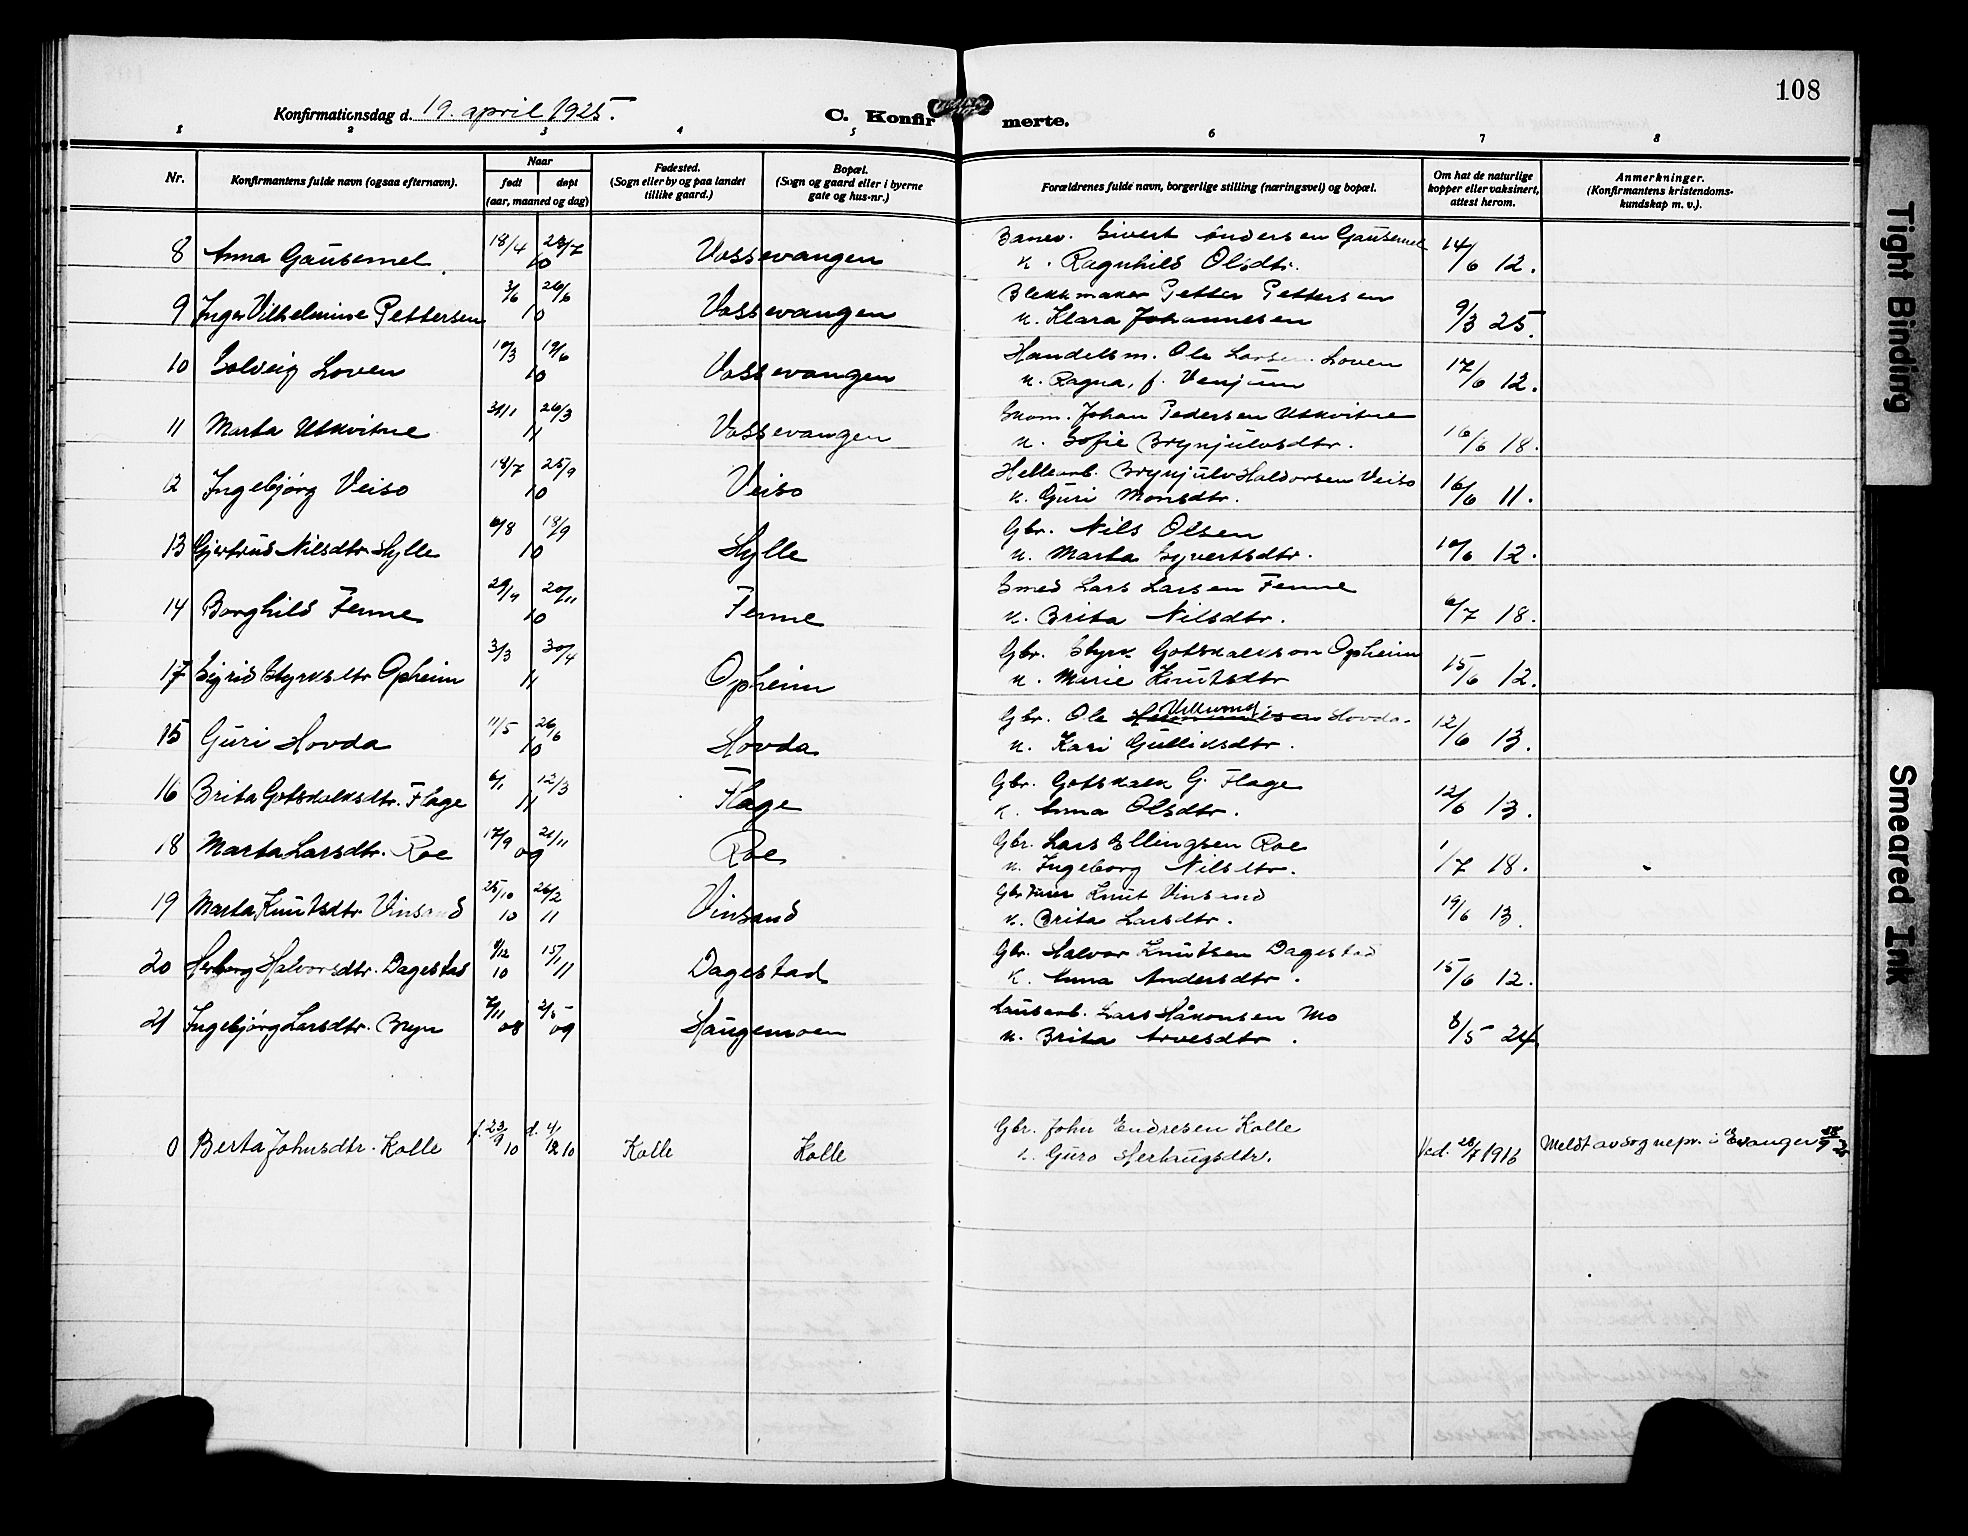 108
Konfirmationsdag d. 19. april 1925.
C. Konfirmerte.
1 2 3 4 5 6 7 8
Nr.
Konfirmantens fulde navn (ogsaa efternavn).
Naar
født døpt
(aar, maaned og dag)
Fødested.
(Sogn eller by og paa landet
tillike gaard.)
Bopæl.
(Sogn og gaard eller i byerne
gate og hus-nr.)
Forældrenes fulde navn, borgerlige stilling (næringsvei) og bopæl.
Om hat de naturlige
kopper eller vaksinert,
attest herom.
Anmerkninger.
(Konfirmantens kristendoms-
kundskap m. v.).
8 Anna Gausemel 18/4 28/7 10 Vossevangen Banev. Sivert Andersen Gausemel
K. Ragnhild Olsdtr. 14/6 12.
9 Inger Vilhelmine Pettersen 3/6 26/6 10 Vossevangen Blekkmaker Petter Pettersen
K. Klara Johannesen 9/3 25.
10 Solveig Loven 10/3 19/6 10 Vossevangen Handelsm. Ole Larsen Loven
K. Ragna, f. Venjum 17/6 12.
11 Marta Utkvitne 31/1 26/3 11 Vossevangen Skom. Johan Pedersen Utkvitne
K. Sofie Brynjulvsdtr. 16/6 18.
12 Ingebjørg Veiso 18/7 25/9 10 Veiso Hellearb. Brynjulv Haldorsen Veiso
K. Guri Monsdtr. 16/6 11.
13 Gjertrud Nilsdtr Hylle 6/8 18/9 10 Hylle Gbr. Nils Olsen
K. Marta Syvertsdtr. 10/6 12.
14 Borghild Fenne 29/9 20/11 10 Fenne Smed Lars Larsen Fenne
K. Brita Nilsdtr. 6/7 18.
17 Sigrid Styrksdtr Opheim 3/3 30/4 11 Opheim Gbr. Styrk Gotskalkson Opheim
K. Marie Knutsdtr 15/6 12.
15 Guri Hovda 11/5 26/6 10 Hovda Gbr. Ole Hovda.
K. Kari Gulliksdtr. 12/6 13.
16 Brita Gotskalksdtr. Flage 6/1 12/3 11 Flage Gbr. Gotskalk G. Flage
K. Anna Olsdtr. 12/6 13.
18 Marta Larsdtr. Roe 17/9 21/11 09 Roe Gbr. Lars Ellingsen Roe
K. Ingeborg Nilsdtr. 1/7 18.
19 Marta Knutsdtr Vinsand 25/10 10 26/2 11 Vinsand Gbr Knut Vinsand
K. Brita Larsdtr. 19/6 13.
20 Herborg Halvorsdtr. Dagestad 9/12 10 15/1 11 Dagestad Gbr. Halvor Knutsen Dagestad
K. Anna Andersdtr. 15/6 12.
21 Ingebjørg Larsdtr. Bryn 7/11 08 2/5 09 Haugamoen Lausarb. Lars Håkonsen Mo
K. Brita Arvesdtr. 8/5 24.
0 Berta Johnsdtr. Kolle f. 23/9 10 d. 4/12 10 Kolle Kolle Gbr. John Endresen Kolle
K. Guro Herbrugsdtr. Vac. 28/7 1916 Meldt av sognepr. i Evanger
Tight Binding
Smeared Ink